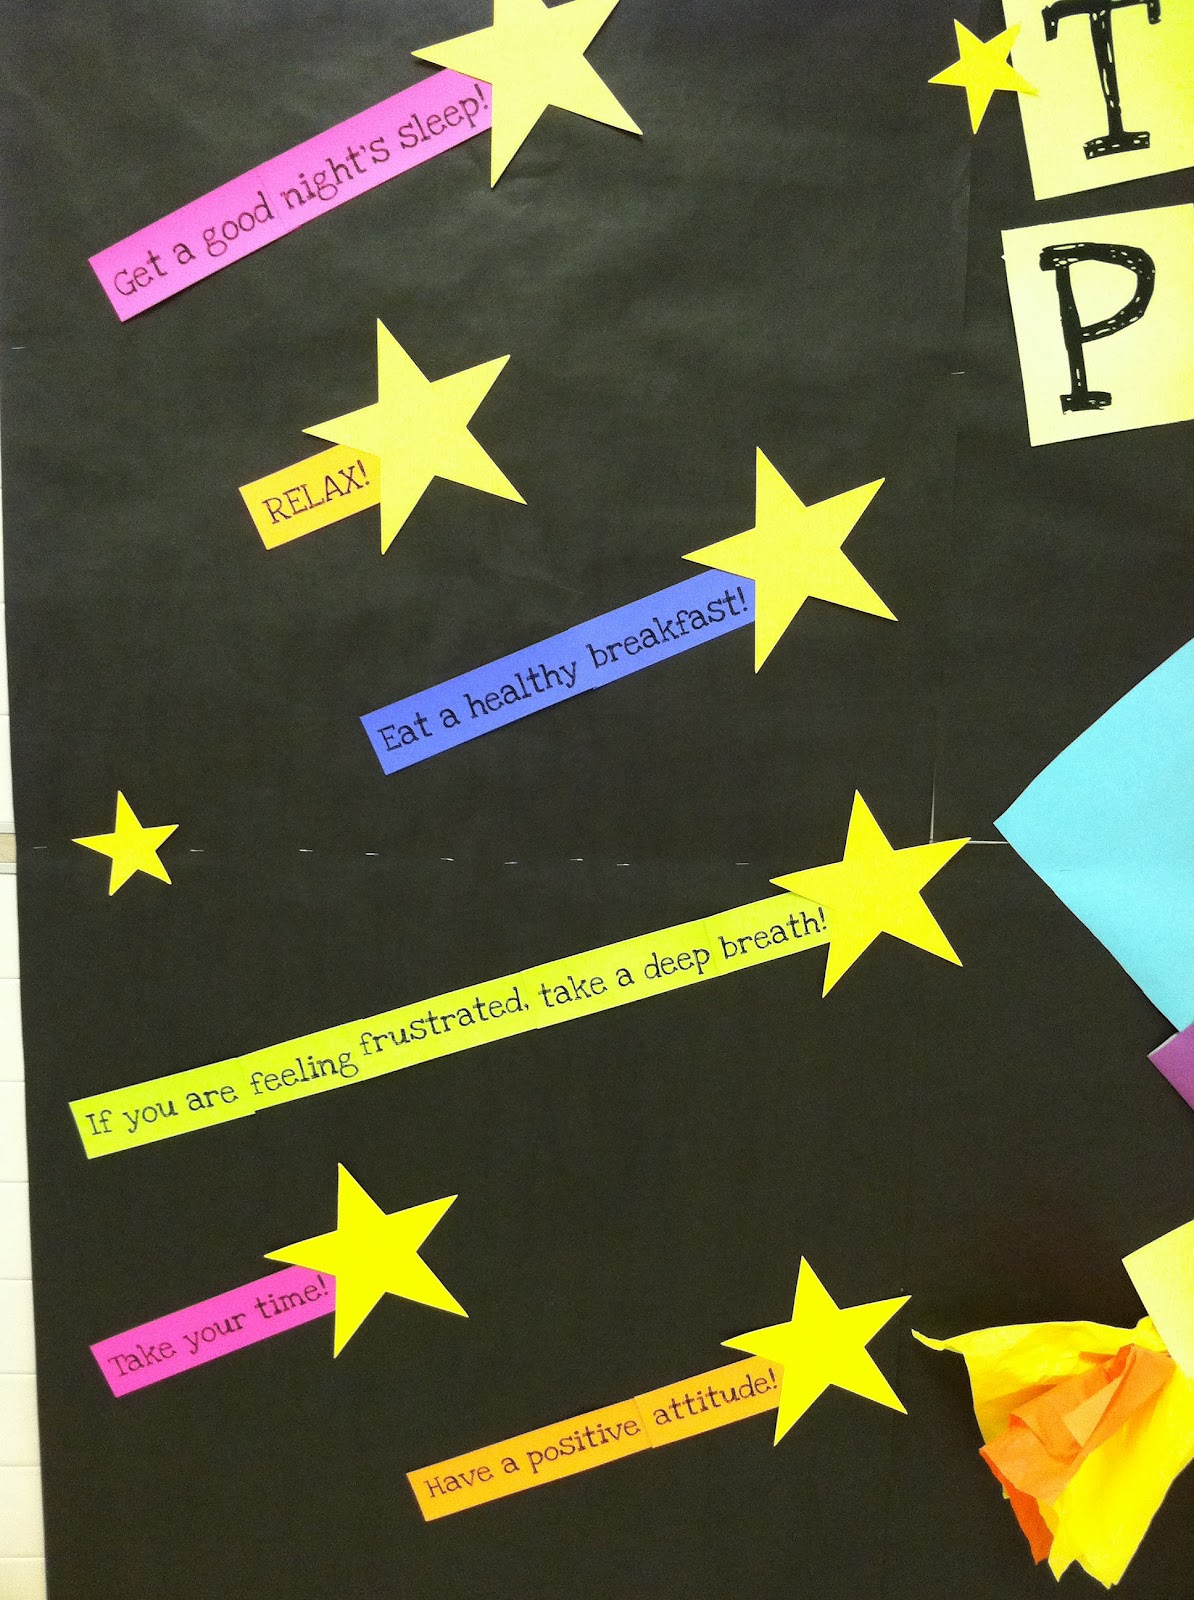 Get a good night's sleep!
T
P
RELAX!
Eat a healthy breakfast!
If you are feeling frustrated, take a deep breath!
Take your time!
Have a positive attitude!